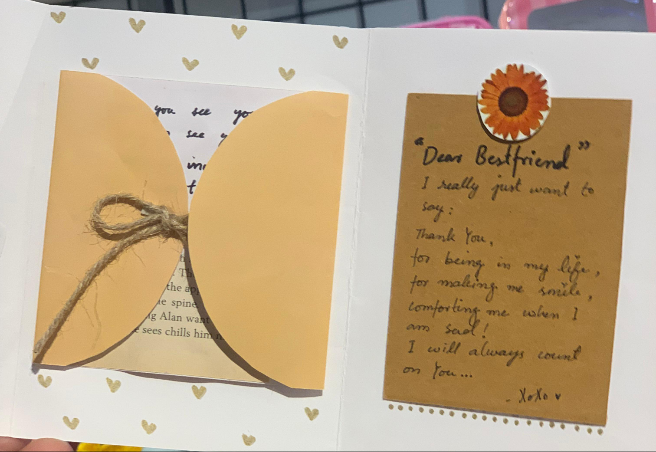 you see yo
see y
in
t
Th
the ap
e spine
g Alan want
e sees chills him
"Dear Bestfriend"
I really just want to
say:
Thank You,
for being in my life,
for making me smile,
comforting me when I
am sad!
I will always count
on You...
- XoXo ♥